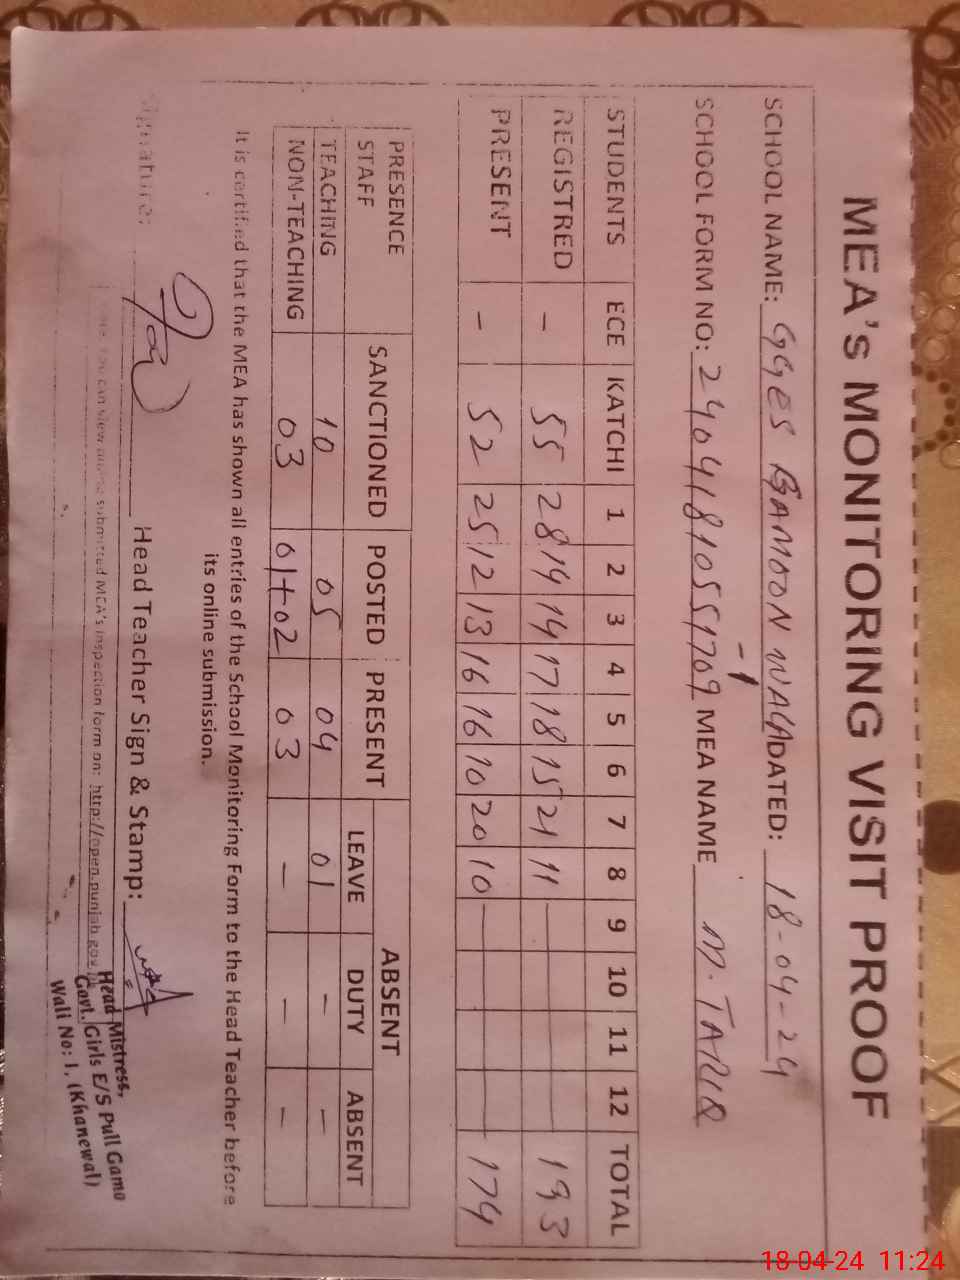 MEA's MONITORING VISIT PROOF
SCHOOL NAME: GGES GAMOON WALI DATED: 18-04-24
-1
SCHOOL FORM NO: 2404181055709 MEA NAME M. TARIQ
STUDENTS ECE KATCHI 1 2 3 4 5 6 7 8 9 10 11 12 TOTAL
REGISTRED - 55 28 14 14 17 18 15 21 11 193
PRESENT - 52 25 12 13 16 16 10 20 10 174
PRESENCE STAFF SANCTIONED POSTED PRESENT ABSENT
LEAVE DUTY ABSENT
TEACHING 10 05 04 01 - -
NON-TEACHING 03 01+02 03 - - -
It is certified that the MEA has shown all entries of the School Monitoring Form to the Head Teacher before
its online submission.
Signature: Head Teacher Sign & Stamp:
you can view submitted MEA's inspection form on: http://open.punjab.gov.pk
Head Mistress,
Govt. Girls E/S Pull Gamo
Wali No: 1, (Khanewal)
18-04-24 11:24